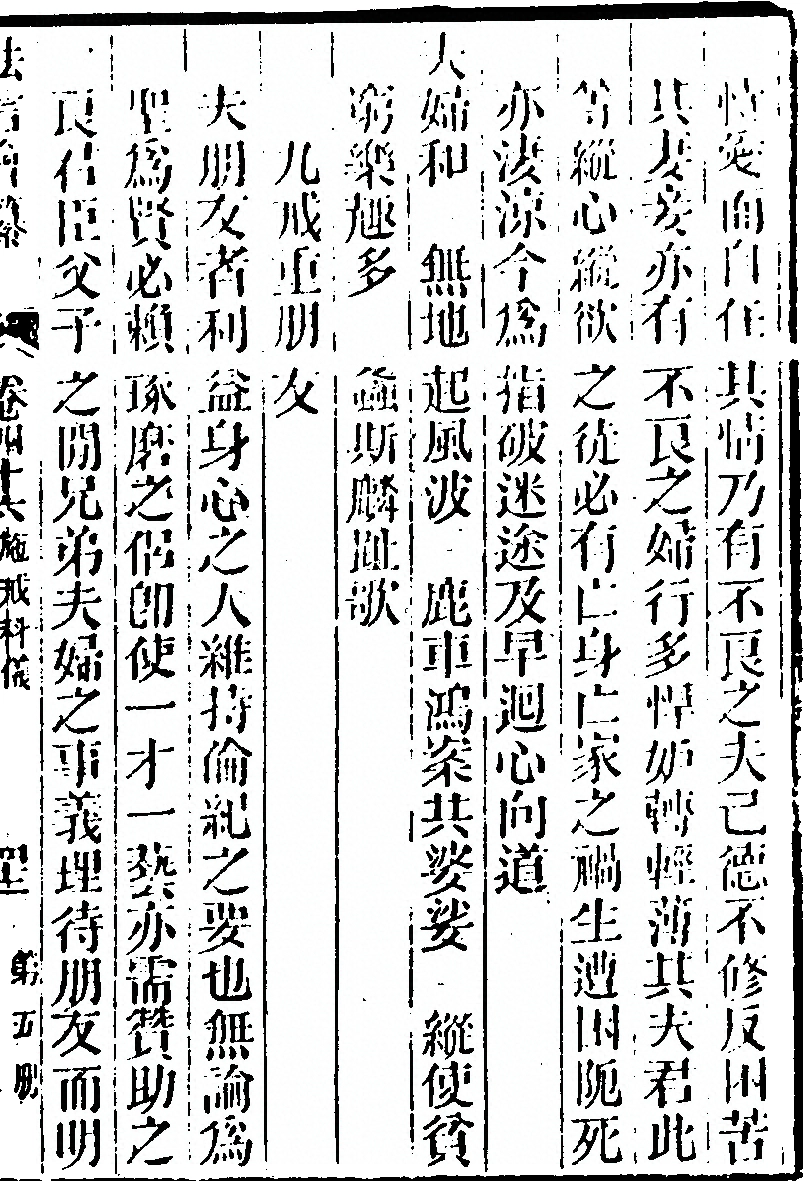 情愛而自任其情乃有不良之夫己德不修反困苦
其妻妾亦有不良之婦行多悍妒轉輕薄其夫君此
等縱心縱欲之徒必有亡身亡家之禍生遭困阨死
亦淒涼今爲指破迷途及早迴心向道
夫婦和 無地起風波 鹿車鴻案共婆娑 縱使貧
窮樂趣多 螽斯麟趾歌
九戒重朋友
夫朋友者利益身心之人維持倫紀之要也無論爲
聖爲賢必賴琢磨之侶卽使一才一藝亦需贊助之
良君臣父子之閒兄弟夫婦之事義理待朋友而明
卷四十六 施戒科儀 第五册